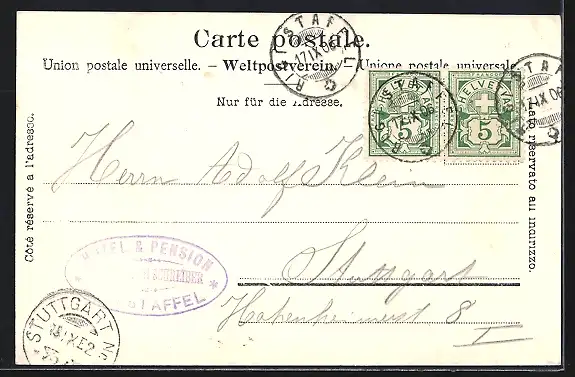 Carte postale.
Union postale universelle. – Weltpostverein. – Unione postale universale
Nur für die Adresse.
RIGI STAFFEL
17.IX.06
RIGI STAFFEL
17.IX.06
STAFFEL
17.IX.06
HELVETIA
5
HELVETIA
5
Côté réservé à l'adresse.
Lato riservato all indirizzo.
Herrn Adolf Klein
Stuttgart
Hohenheimerst 8
I
HOTEL & PENSION
SCHREIBER
STAFFEL
STUTTGART